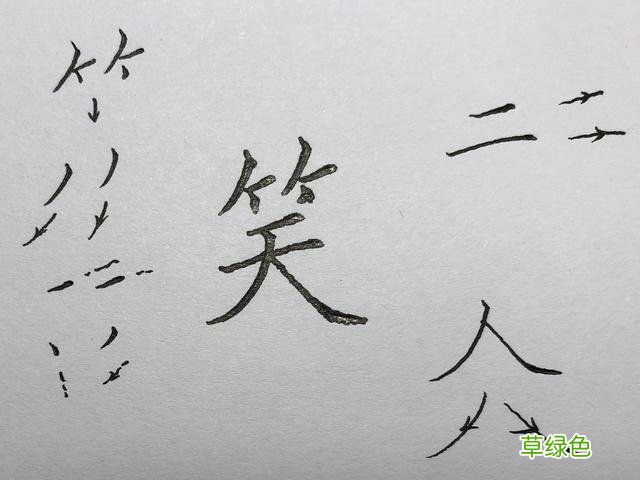 ⺮
笑
二
人
草绿色